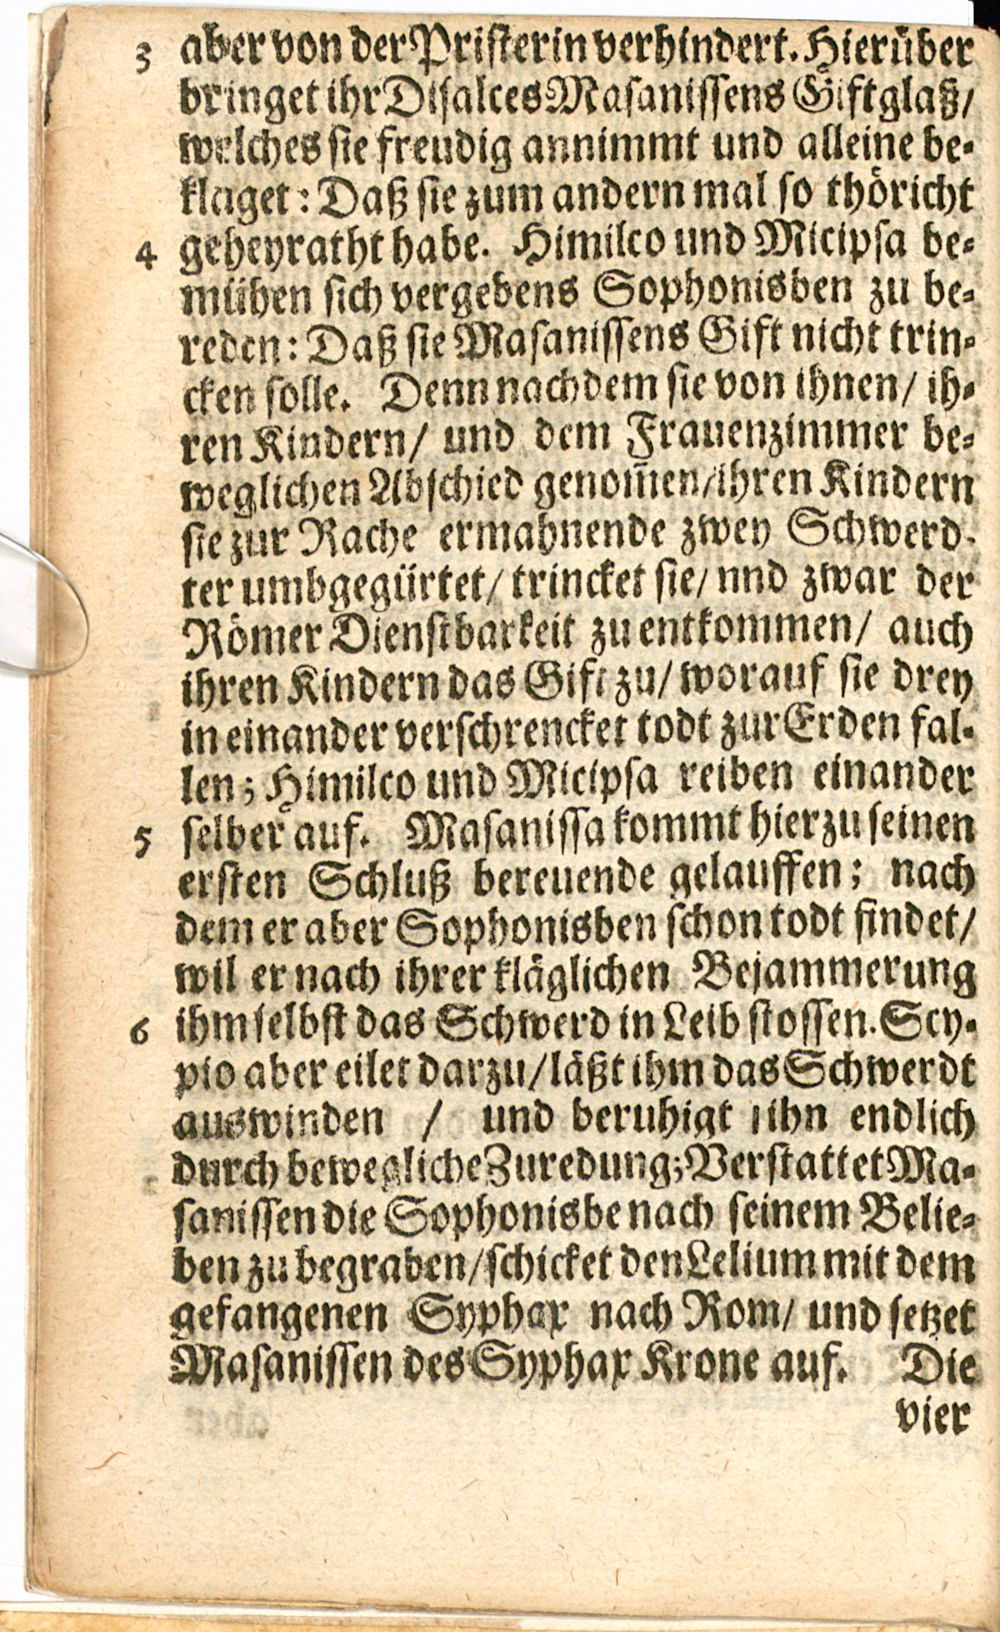 3 aber von der Pristerin verhindert. Hierüber
bringet ihr Disalces Masanissens Giftglaß/
welches sie freudig annimmt und alleine be-
klaget: Daß sie zum andern mal so thöricht
4 geheyratht habe. Himilco und Micipsa be-
mühen sich vergebens Sophonisben zu be-
reden: Daß sie Masanissens Gift nicht trin-
cken solle. Denn nachdem sie von ihnen/ ih-
ren Kindern/ und dem Frauenzimmer be-
weglichen Abschied genom̃en/ihren Kindern
sie zur Rache ermahnende zwey Schwerd-
ter umbgegürtet/ trincket sie/ nnd zwar der
Römer Dienstbarkeit zu entkommen/ auch
ihren Kindern das Gift zu/ worauf sie drey
in einander verschrencket todt zur Erden fal-
len; Himilco und Micipsa reiben einander
5 selber auf. Masanissa kommt hierzu seinen
ersten Schluß bereuende gelauffen; nach
dem er aber Sophonisben schon todt findet/
wil er nach ihrer kläglichen Bejammerung
6 ihm selbst das Schwerd in Leib stossen. Scy-
pio aber eilet darzu/läßt ihm das Schwerdt
auswinden / und beruhigt ihn endlich
durch bewegliche Zuredung; Verstattet Ma-
sanissen die Sophonisbe nach seinem Belie-
ben zu begraben/schicket den Lelium mit dem
gefangenen Syphax nach Rom/ und setzet
Masanissen des Syphax Krone auf. Die
vier